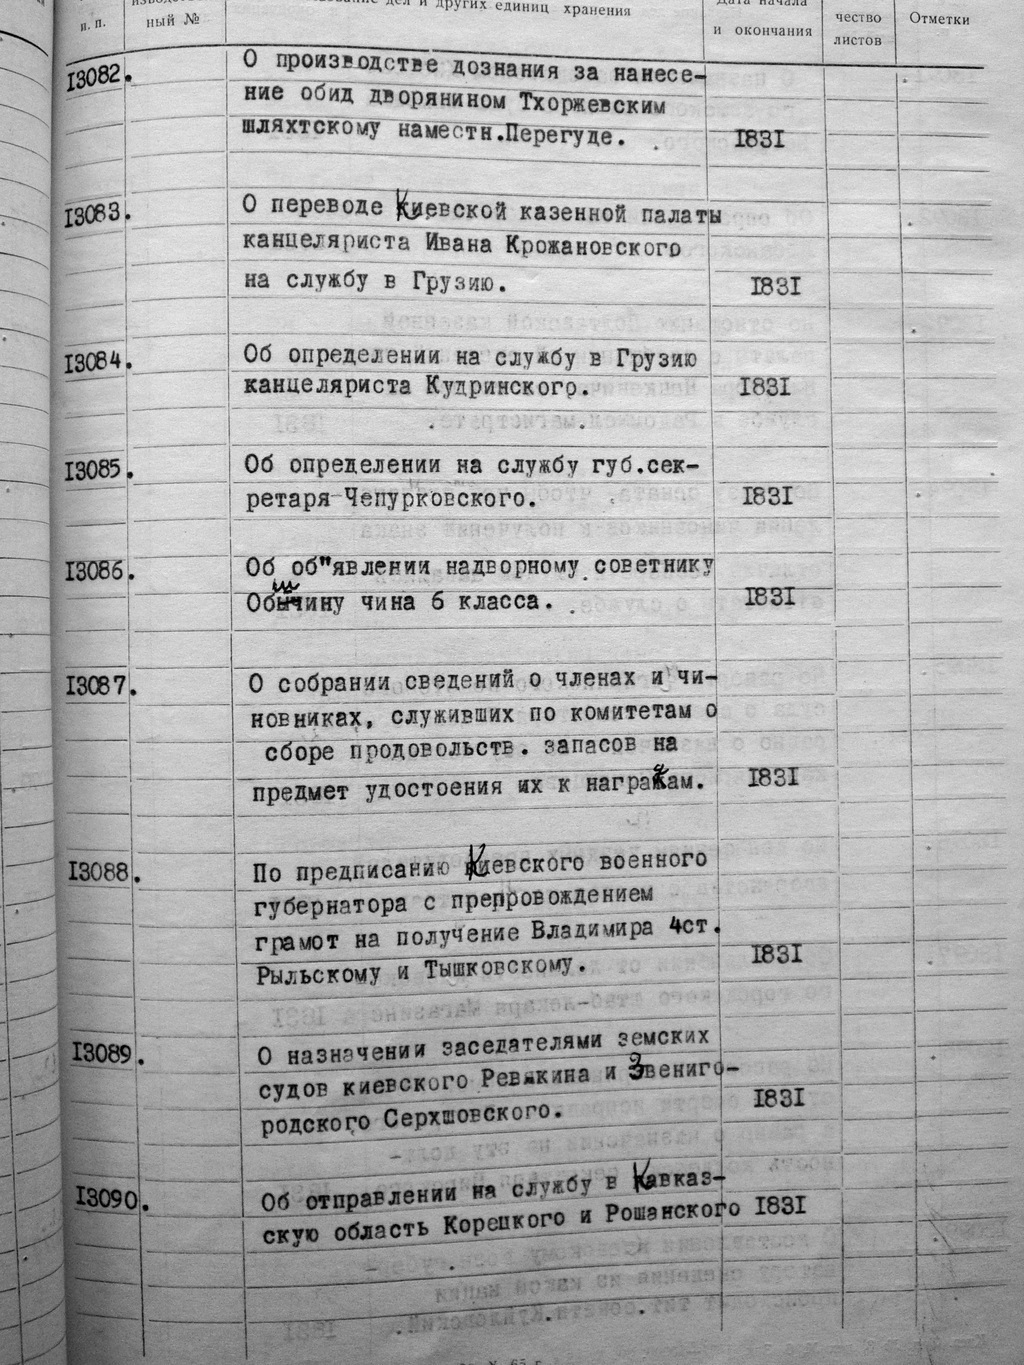 п. п.
ный №
дел и других единиц хранения
Дата начала
и окончания
чество
листов
Отметки
13082.
О производстве дознания за нанесе-
ние обид дворянином Тхоржевским
шляхтскому наместн.Перегуде.
1831
13083.
О переводе Киевской казенной палаты
канцеляриста Ивана Крожановского
на службу в Грузию.
1831
13084.
Об определении на службу в Грузию
канцеляриста Кудринского.
1831
13085.
Об определении на службу губ.сек-
ретаря Чепурковского.
1831
13086.
Об об"явлении надворному советнику
чина 6 класса.
1831
13087.
О собрании сведений о членах и чи-
новниках, служивших по комитетам о
сборе продовольств. запасов на
предмет удостоения их к наградам.
1831
13088.
По предписанию Киевского военного
губернатора с препровождением
грамот на получение Владимира 4ст.
Рыльскому и Тышковскому.
1831
13089.
О назначении заседателями земских
судов киевского Ревякина и Звениго-
родского Серхшовского.
1831
13090.
Об отправлении на службу в Кавказ-
скую область Корецкого и Рошанского 1831